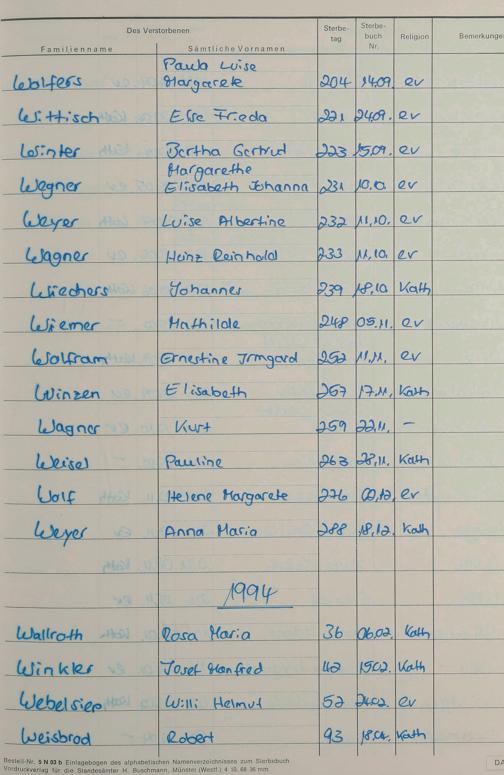 Des Verstorbenen Sterbe- Sterbe- Religion Bemerkunge
Familienname Sämtliche Vornamen tag buch
Nr.
Paula Luise
Wolfers Margarete 204 14.09. ev
Wittisch Else Frieda 221 24.09. ev
Winter Bertha Gertrud 223 25.09. ev
Margarethe
Wegner Elisabeth Johanna 231 10.10. ev
Weyer Luise Albertine 232 11.10. ev
Wagner Heinz Reinhold 233 11.10. ev
Wiechers Johannes 239 18.10 Kath
Wiemer Mathilde 248 05.11. ev
Wolfram Ernestine Irmgard 252 11.11. ev
Winzen Elisabeth 257 17.11. Kath
Wagner Kurt 259 22.11. –
Weisel Pauline 263 28.11. Kath
Wolf Helene Margarete 276 09.12. ev
Weyer Anna Maria 288 18.12. Kath
1994
Wallroth Rosa Maria 36 06.02. Kath
Winkler Josef Manfred 42 15.02. Kath
Webelsiep Willi Helmut 52 24.02. ev
Weisbrod Robert 93 18.04. Kath
Bestell-Nr. 5 N 03 b Einlagebogen des alphabetischen Namenverzeichnisses zum Sterbebuch
Vordruckverlag für die Standesämter H. Buschmann, Münster (Westf.) 4 10 68 36 mm.